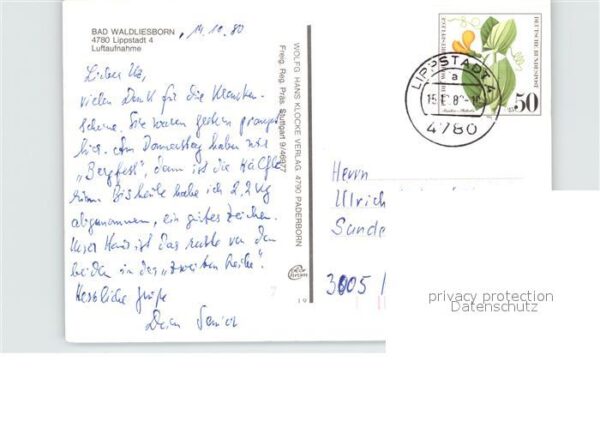 BAD WALDLIESBORN
4780 Lippstadt 4
Luftaufnahme
14.10.80
Lieber Utz,
vielen Dank für die Kranken-
scheine. Sie waren gestern
hier. Am Donnerstag haben wir
„Bergfest", dann ist die Hälfte
rum. Bis heute habe ich 2,2 kg
abgenommen, ein gutes Zeichen.
Unser Haus ist das rechte von den
beiden in der „zweiten Reihe".
Herzliche Grüße
Dein
WOLFG. HANS KLOCKE VERLAG 4790 PADERBORN
Freig. Reg. Präs. Stuttgart 9/46977
19
LIPPSTADT 4
a
4780
DEUTSCHE BUNDESPOST
50
Herrn
Ulrich
Sande
3005
privacy protection
Datenschutz